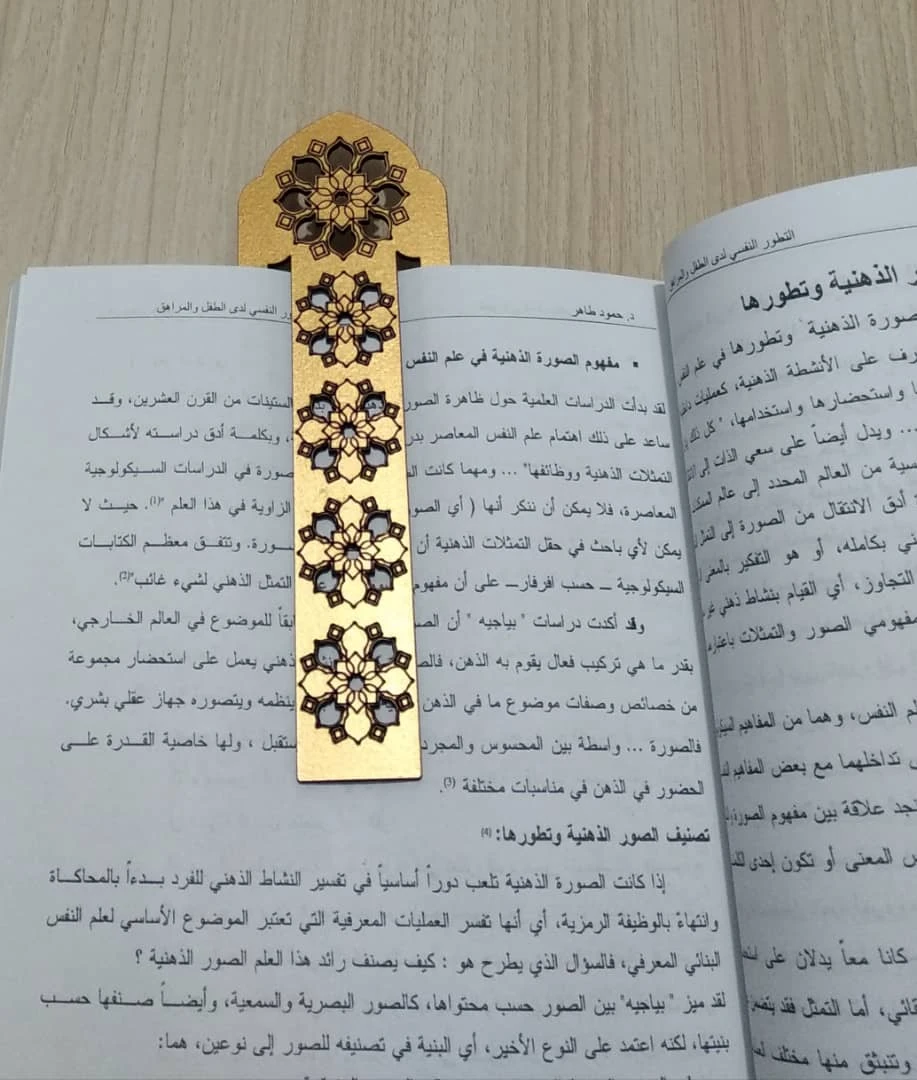 د. حمود طاهر
ور النفسي لدى الطفل والمراهق
▪ مفهوم الصورة الذهنية في علم النفس
لقد بدأت الدراسات العلمية حول ظاهرة الصور الستينات من القرن العشرين، وقد
ساعد على ذلك اهتمام علم النفس المعاصر بدر ، وبكلمة أدق دراسته لأشكال
التمثلات الذهنية ووظائفها" ... ومهما كانت صورة في الدراسات السيكولوجية
المعاصرة، فلا يمكن أن ننكر أنها ( أي الصور الزاوية في هذا العلم "(1). حيث لا
يمكن لأي باحث في حقل التمثلات الذهنية أن سورة. وتتفق معظم الكتابات
السيكولوجية ــ حسب افرفار ــ على أن مفهوم التمثل الذهني لشيء غائب"(2).
وقد أكدت دراسات " بياجيه " أن الص بقاً للموضوع في العالم الخارجي،
بقدر ما هي تركيب فعال يقوم به الذهن، فالص ذهني يعمل على استحضار مجموعة
من خصائص وصفات موضوع ما في الذهن ينظمه ويتصوره جهاز عقلي بشري.
فالصورة ... واسطة بين المحسوس والمجرد ستقبل ، ولها خاصية القدرة على
الحضور في الذهن في مناسبات مختلفة (3).
تصنيف الصور الذهنية وتطورها:(4)
إذا كانت الصورة الذهنية تلعب دوراً أساسياً في تفسير النشاط الذهني للفرد بدءاً بالمحاكاة
وانتهاءً بالوظيفة الرمزية، أي أنها تفسر العمليات المعرفية التي تعتبر الموضوع الأساسي لعلم النفس
البنائي المعرفي، فالسؤال الذي يطرح هو : كيف يصنف رائد هذا العلم الصور الذهنية ؟
لقد ميز " بياجيه" بين الصور حسب محتواها، كالصور البصرية والسمعية، وأيضاً صنفها حسب
بنيتها، لكنه اعتمد على النوع الأخير، أي البنية في تصنيفه للصور إلى نوعين، هما:
التطور النفسي لدى الطفل والمراهق
الذهنية وتطورها
صورة الذهنية " وتطورها في علم
رف على الأنشطة الذهنية، كعمليات
واستحضارها واستخدامها، " كل ذلك
... ويدل أيضاً على سعي الذات إلى
سية من العالم المحدد إلى عالم
أدق الانتقال من الصورة إلى
ني بكامله، أو هو التفكير بالمعنى
التجاوز، أي القيام بنشاط ذهني
مفهومي الصور والتمثلات
لم النفس، وهما من المفاهيم
تداخلهما مع بعض المفاهيم
جد علاقة بين مفهوم الصورة
س المعنى أو تكون إحدى
كانا معاً يدلان على
ائي، أما التمثل فقد
وتنبثق منها مختلف